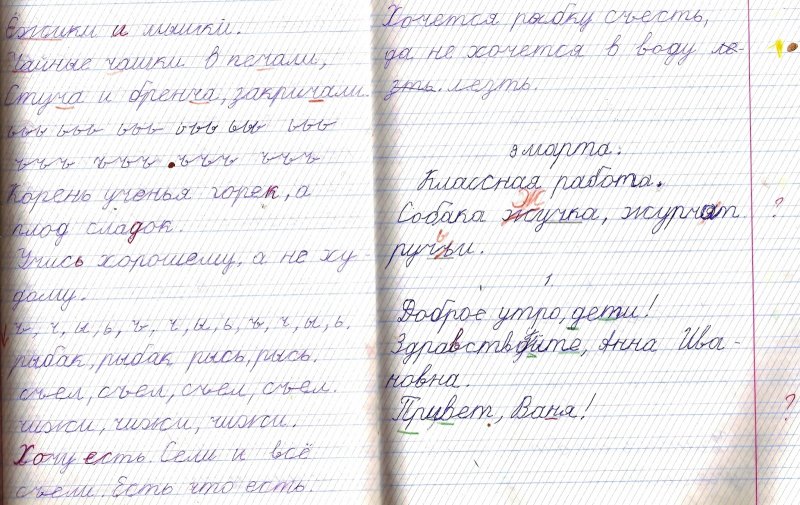 Ёжики и мышки.
Чайные чашки в печали,
Стуча и бренча, закричали.
ььь ььь ььь ььь ыы ььь
ъъъ ъъъ ъъъ ъъъ
Корень ученья горек, а
плод сладок.
Учись хорошему, а не ху-
дому.
ъ, ч, ы, ь, ъ, ч, ы, ь, ъ, ч, ы, ь.
рыбак, рыбак рысь, рысь.
съел, съел, съел, съел.
чижи, чижи, чижи.
Хочу есть. Сели и всё
съели. Есть что есть.
Хочется рыбку съесть,
да не хочется в воду ле-
зть. лезть.
3 марта.
Классная работа.
Ж
Собака жучка, журчат ?
ь
ручьи.
1
Доброе утро, дети!
Здравствуйте, Анна Ива-
новна.
Привет, Ваня! ?